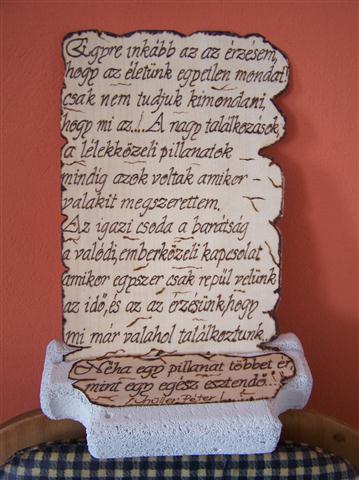 Egyre inkább az az érzésem,
hogy az életünk egyetlen mondat!
csak nem tudjuk kimondani,
hogy mi az...! A nagy találkozások,
a lélekközeli pillanatok
mindig azok voltak amikor
valakit megszerettem.
Az igazi csoda a barátság
a valódi, emberközeli kapcsolat
amikor egyszer csak repül velünk
az idő, és az az érzésünk, hogy
mi már valahol találkoztunk.
Néha egy pillanat többet ér,
mint egy egész esztendő...!
/Thaller Péter/